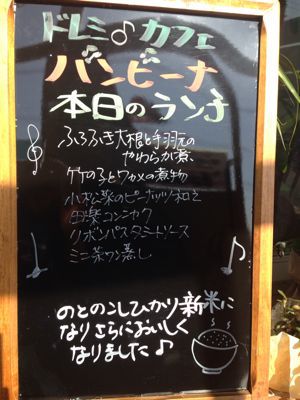 ドレミ♪カフェ
バンビーナ
本日のランチ
ふろふき大根と手羽元の
やわらか煮
竹の子とワカメの煮物
小松菜のピーナッツ和え
田楽コンニャク
リボンパスタミートソース
ミニ茶ワン蒸し
のとのこしひかり新米に
なりさらにおいしく
なりました♪